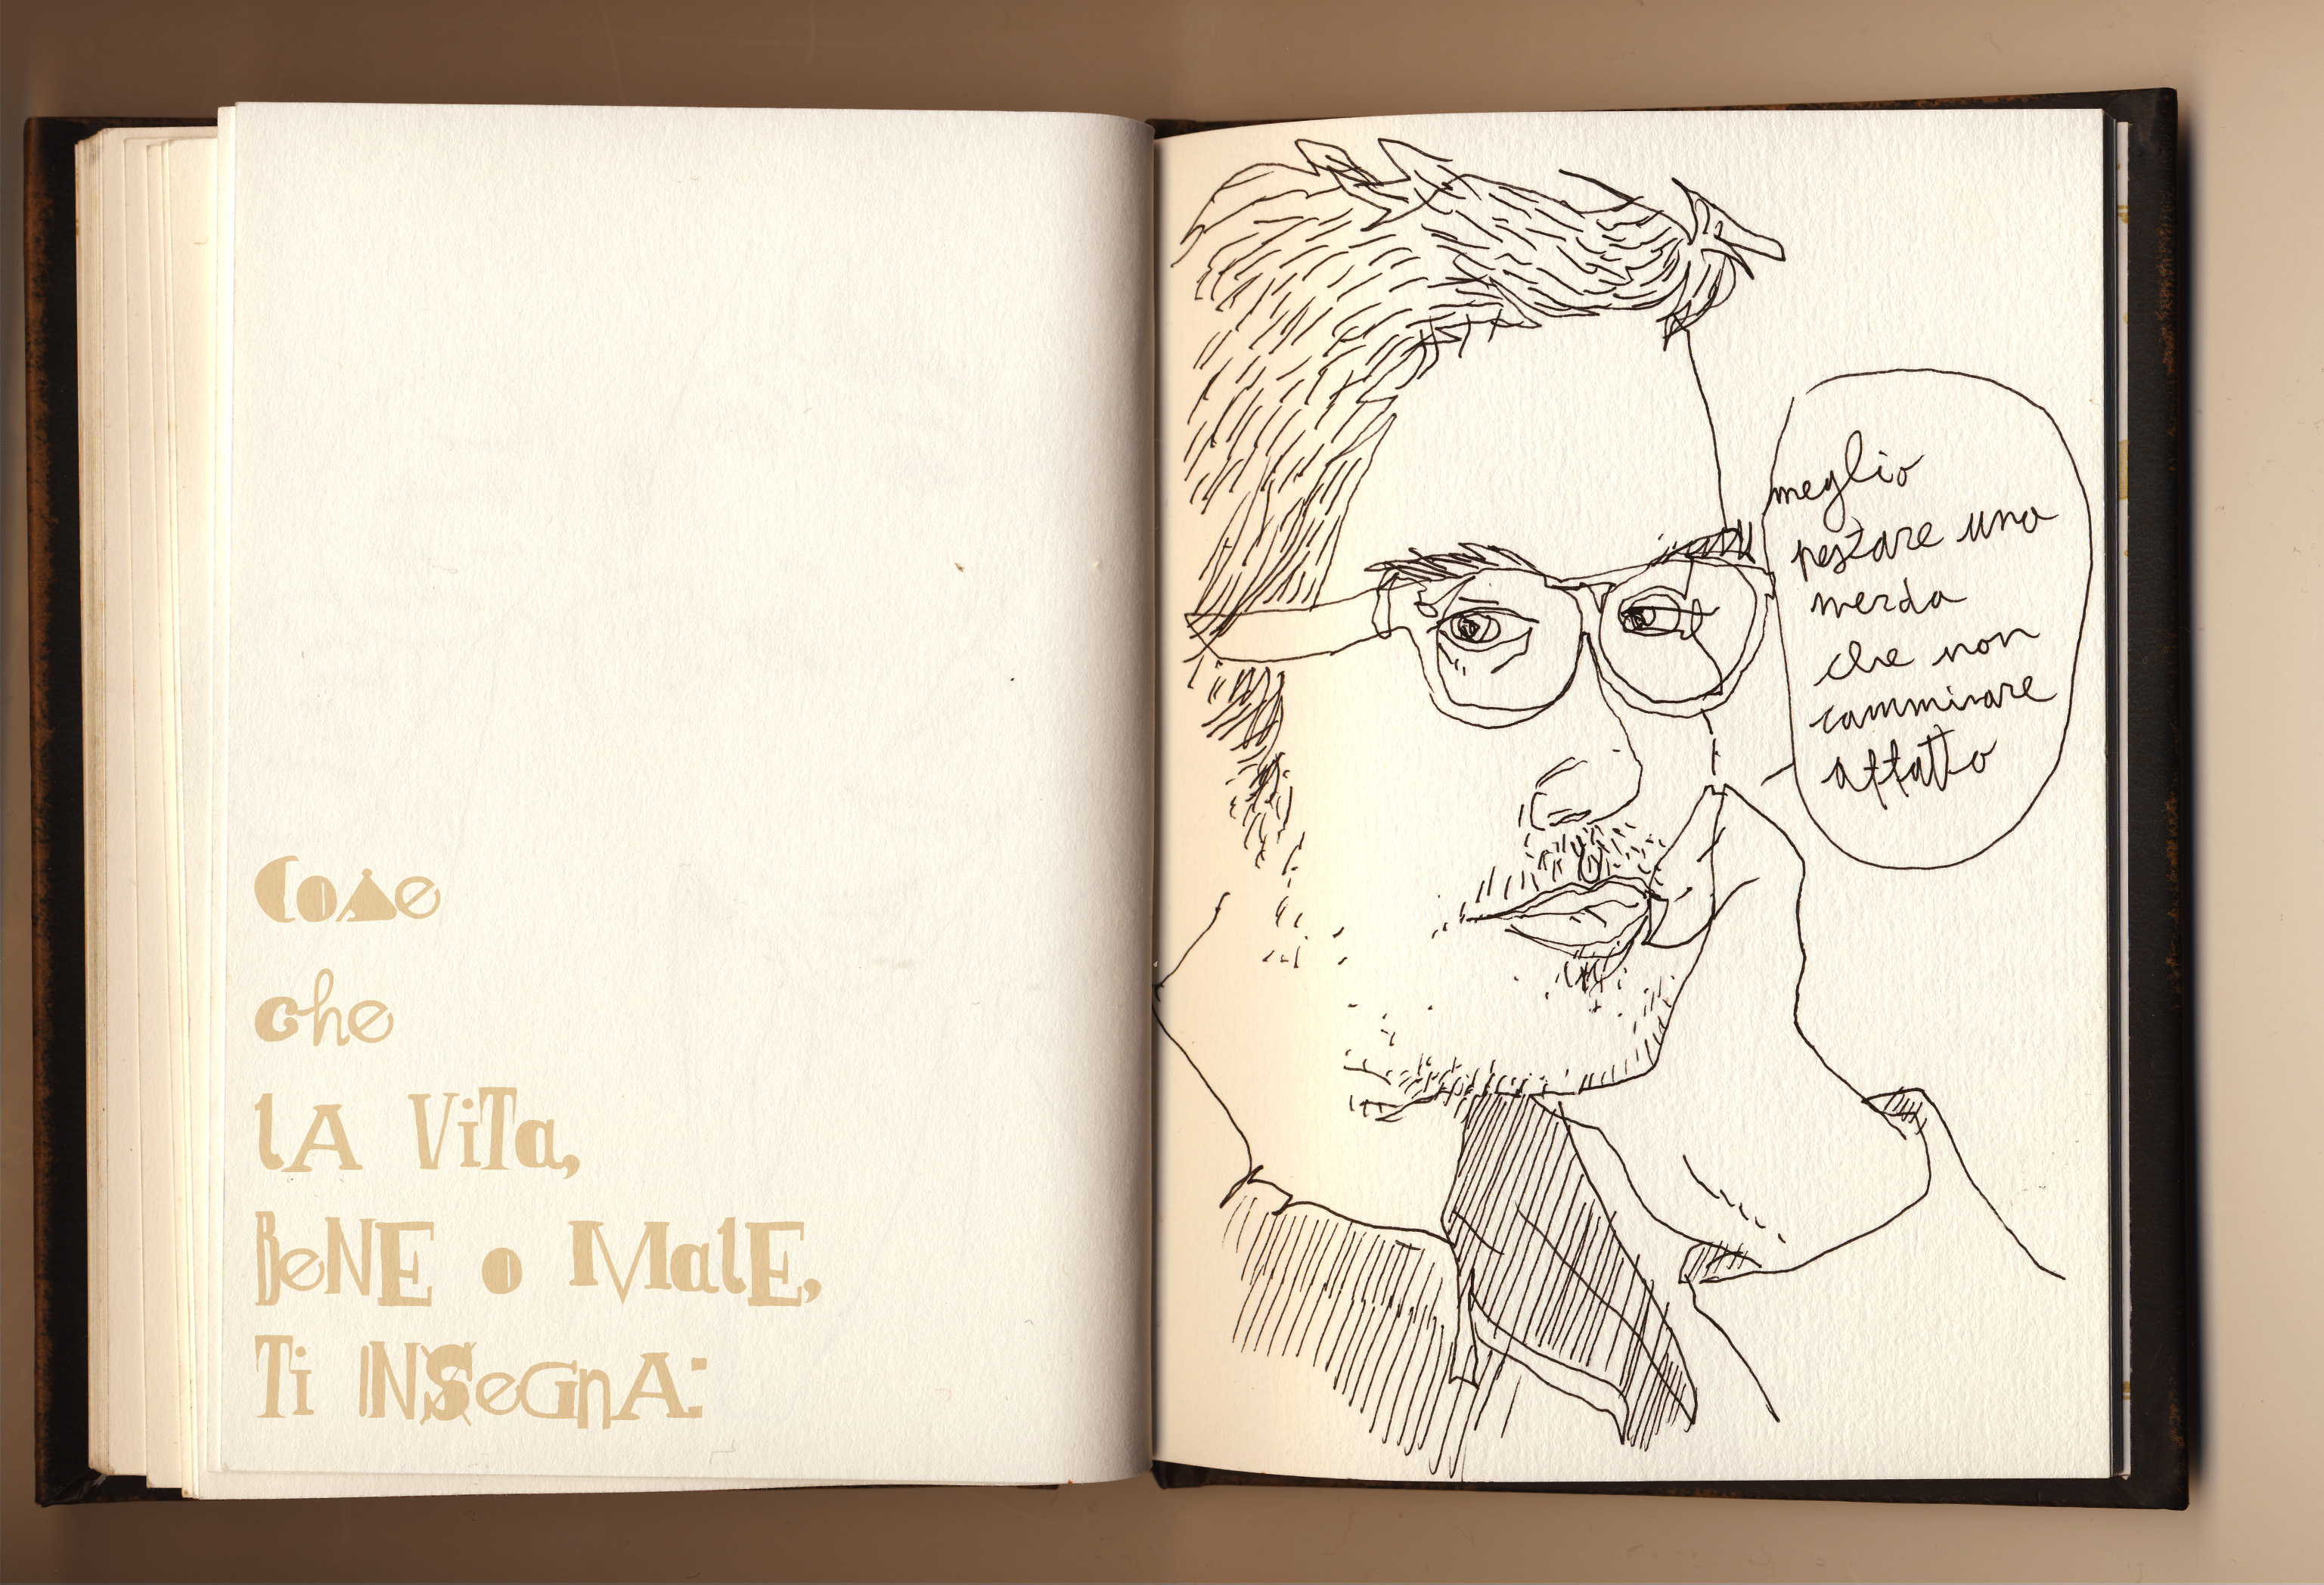 Cose
che
lA ViTa,
BeNE o MalE,
Ti INSeGnA:
meglio
pestare una
merda
che non
camminare
affatto